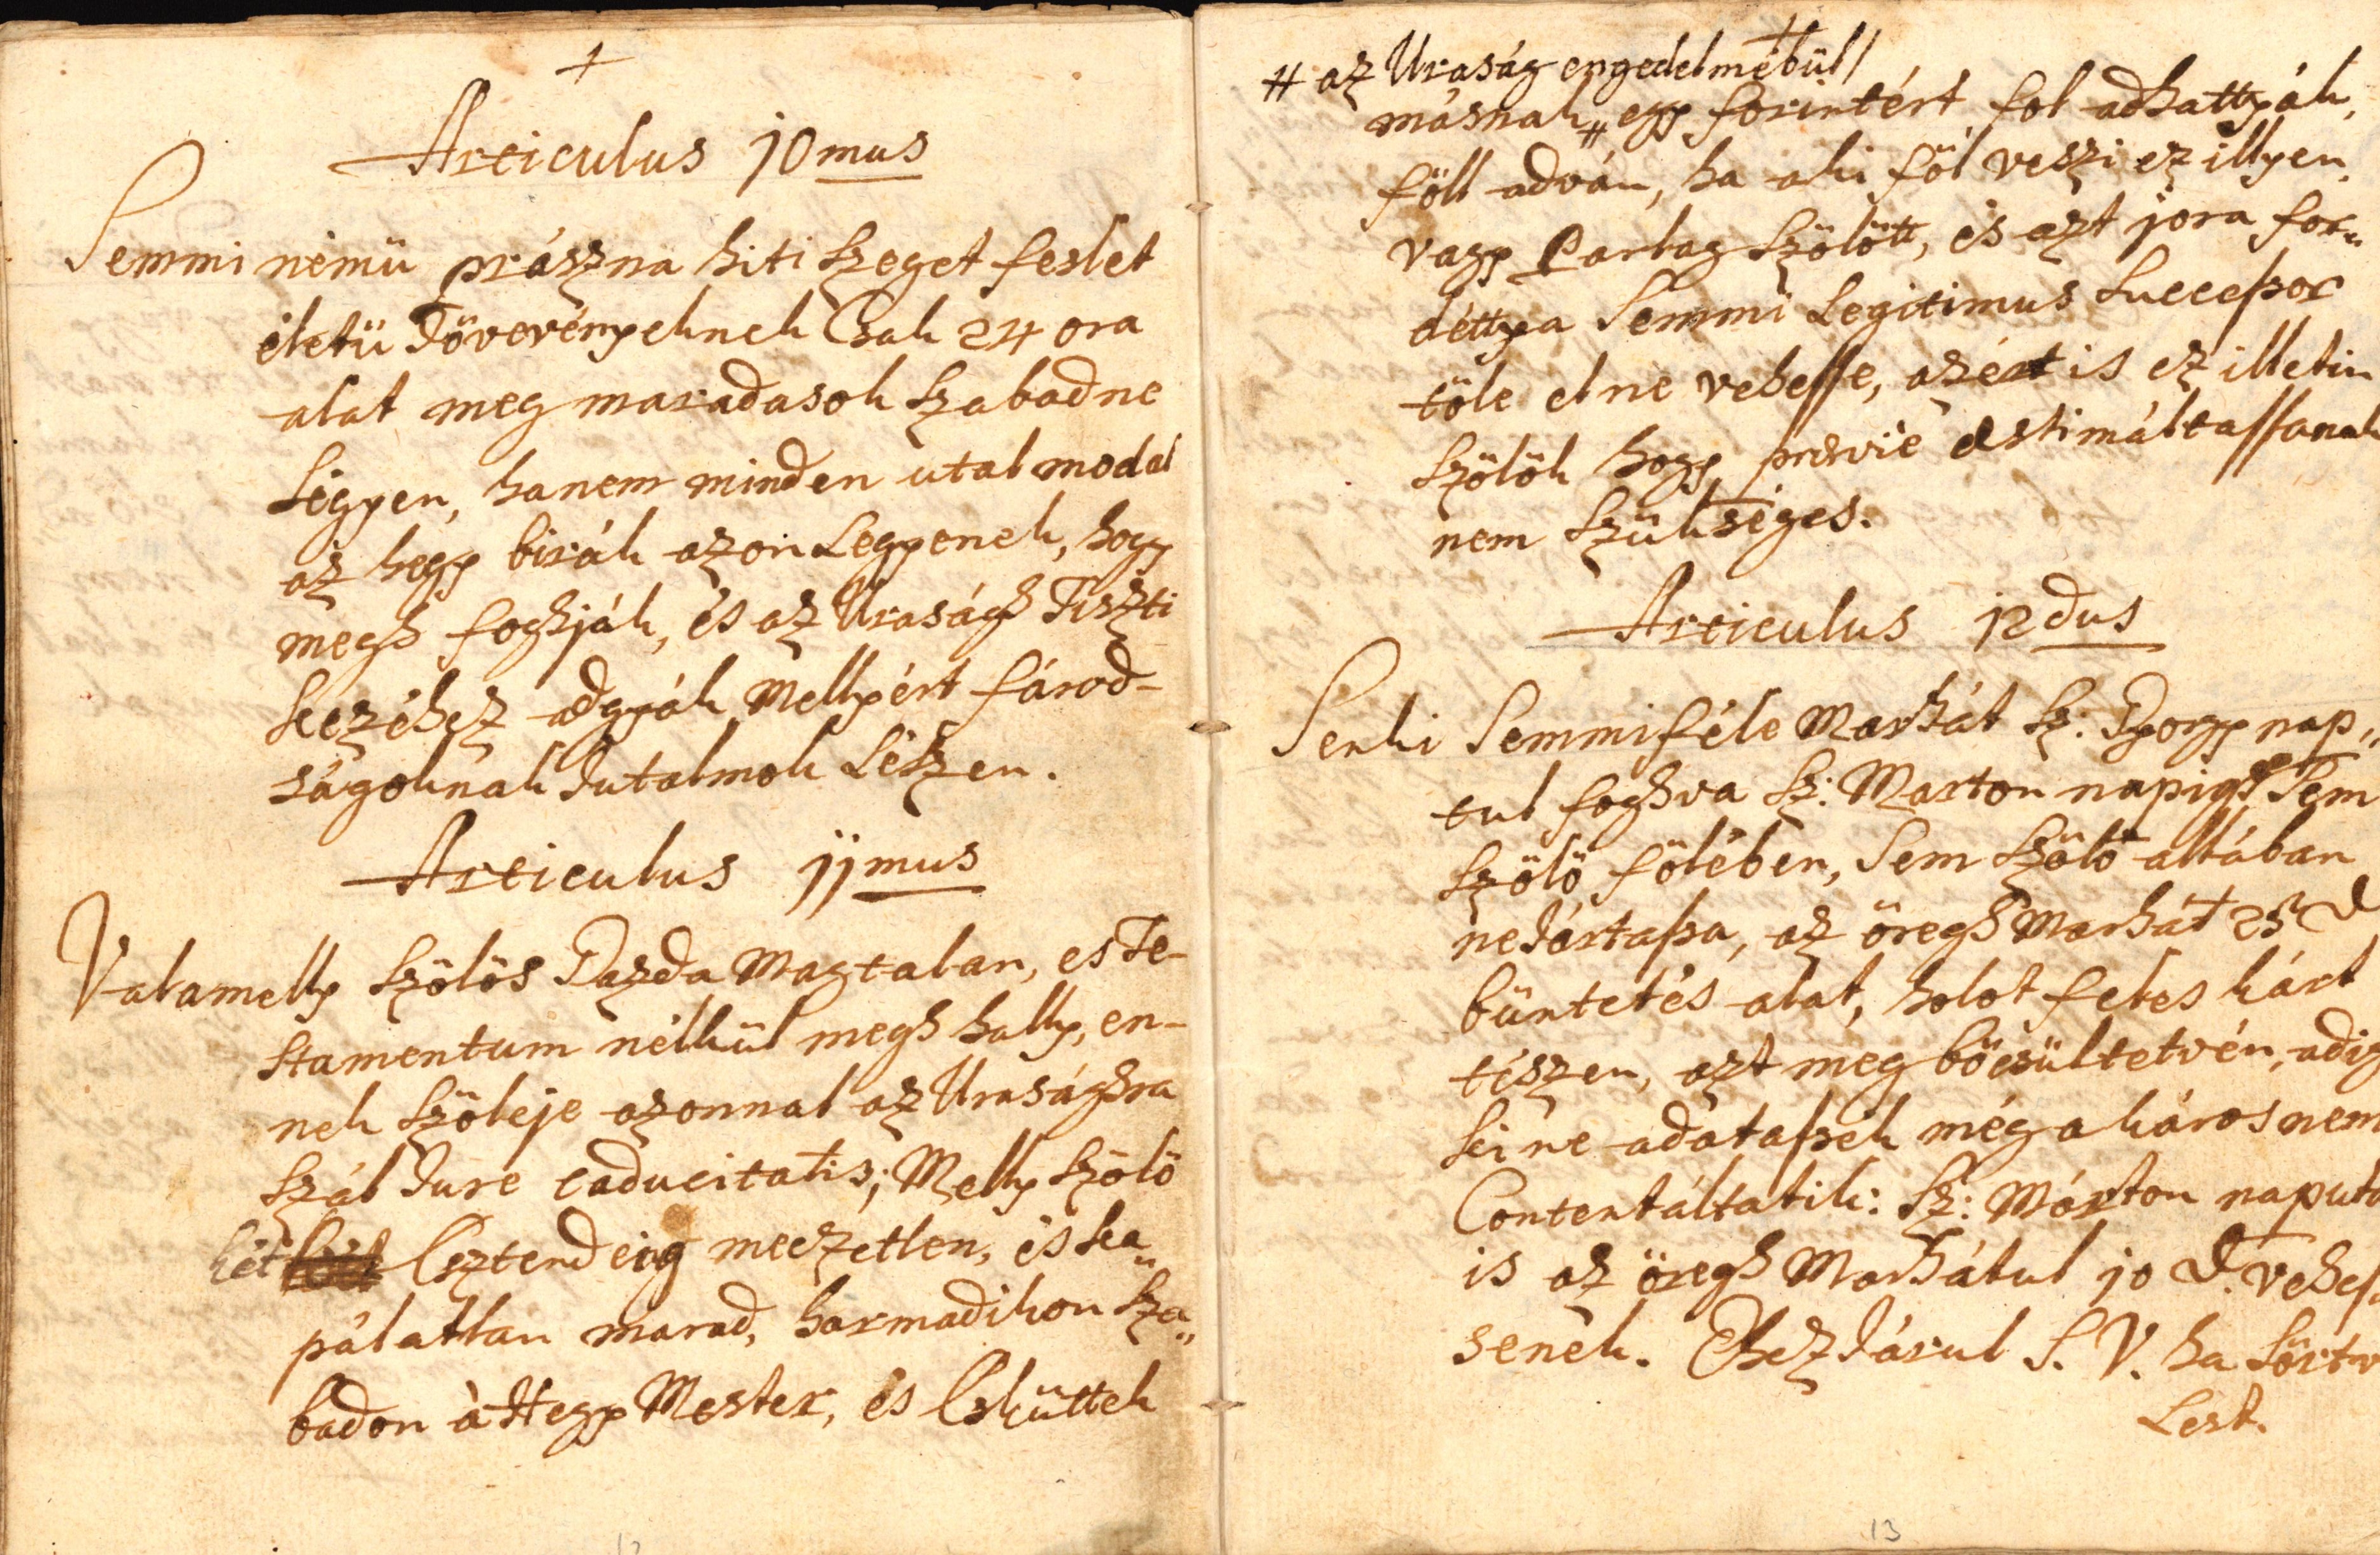 Articulus 10mus
Semmi nemü prászna hiti szeget feslet
életü Jövevényeknek Csak 24 ora
alat meg maradasok szabad ne
Légyen, hanem minden utal modal
az hegy birák azon Legyenek, hogy
megh foghják, és az Uraságh Tiszti
kezéhez adgyák Mellyért fárod-
ságoknak Jutalmok Lészen.
Articulus 11mus
Valamelly szölös Gazda Magtalan, es Te-
stamentum nélkül megh hally, en-
nek szöleje azonnal az Urasághra
szál Jure caducitatis; Melly szölö
két Esztendeig meczetlen, és ka„
pálatlan marad, harmadikon sza„
badon à Hegy Mester, és Esküttek
# az Uraság engedelméböl/
másnak # egy forintért föl adhattyák,
föll adván, ha aki föl veszi ez illyen
vagy Parlag szölött, és azt jora for„
déttya Semmi Legitimus Successor
töle el ne vehesse, azért is ez illetin
szölök hogy prævie æstimáltassanak
nem szükséges.
Articulus 12dus
Senki Semmiféle Marhát Sz: Gyorgy nap„
tul foghva Sz: Marton napigh Sem
szölö fölében, Sem szölö allában
ne Jártassa, az öregh Marhát 25 d
büntetés alat, holot fetes kárt
tészen, azt meg böcsültetvén, adig
ki ne adatassék még a káros nem
Contentáltatik: Sz: Márton naputt
is az öregh Marhátul 10 d. vehes„
senek. Ehez Járul S. V. ha Sörtv
Lest.
13